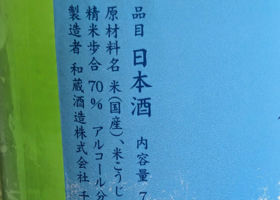 品目 日本酒 内容量 7
原材料名 米(国産)、米こうじ
精米歩合 70% アルコール分
製造者 和蔵酒造株式会社 千